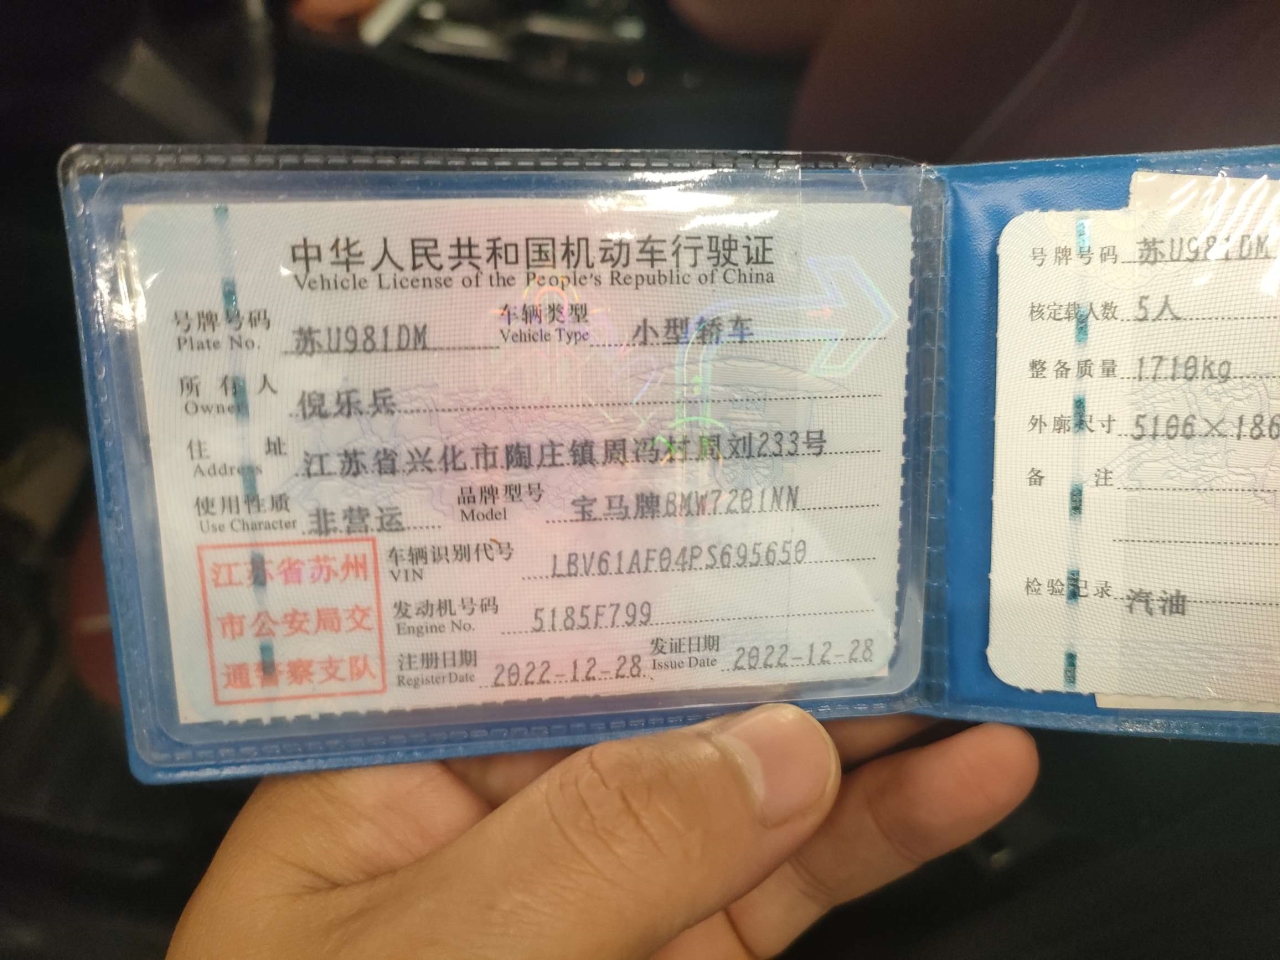 中华人民共和国机动车行驶证
Vehicle License of the People's Republic of China
号牌号码 苏U981DM 车辆类型 小型轿车
Plate No. Vehicle Type
所有人 倪乐兵
Owner
住址 江苏省兴化市陶庄镇周冯村周刘233号
Address
使用性质 非营运 品牌型号 宝马牌BMW7201NN
Use Character Model
车辆识别代号 LBV61AF04PS695650
VIN
发动机号码 5185F799
Engine No.
注册日期 2022-12-28 发证日期 2022-12-28
Register Date Issue Date
江苏省苏州
市公安局交
通警察支队
号牌号码 苏U981DM
核定载人数 5人
整备质量 1710kg
外廓尺寸 5106×186
备注
检验记录 汽油